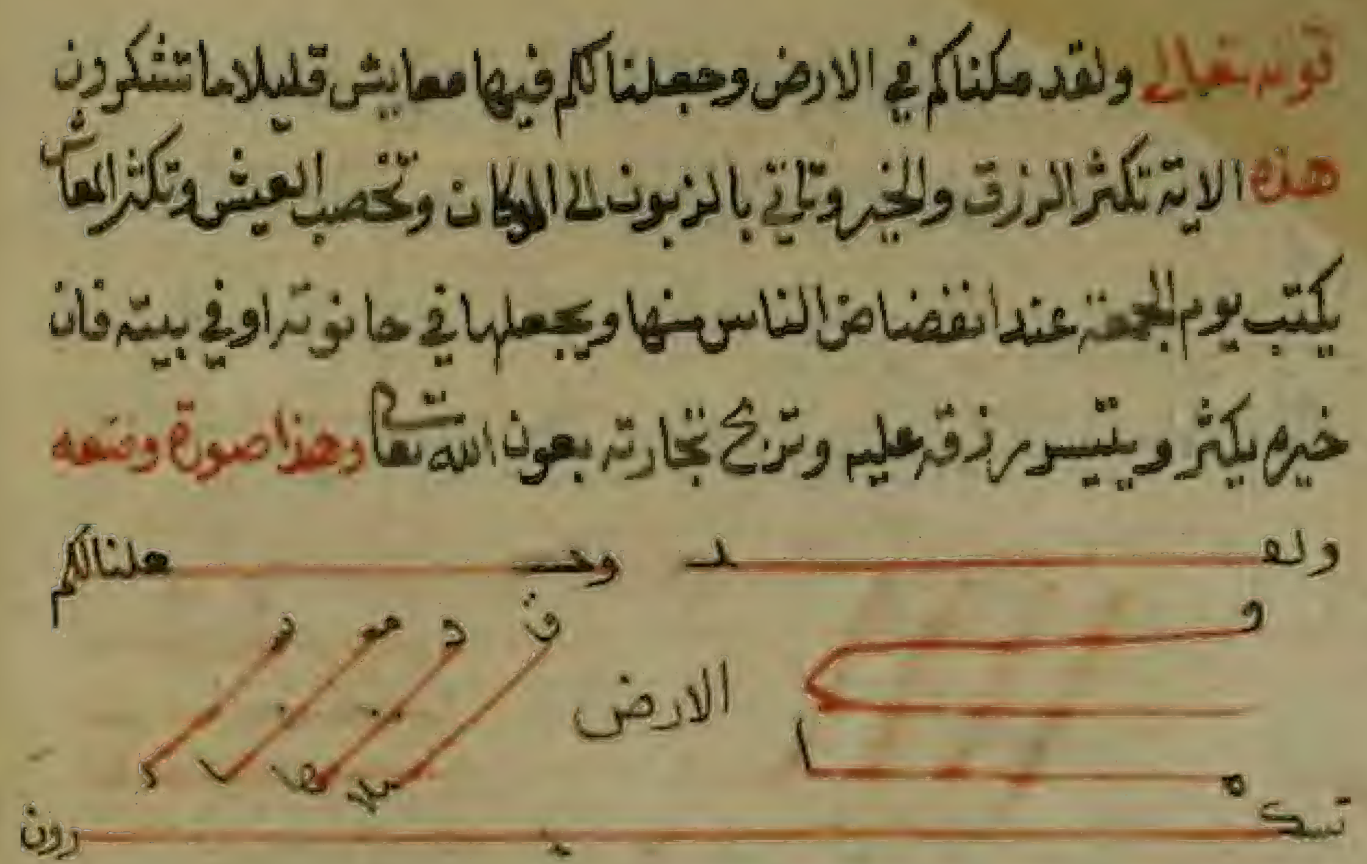 قوله تعالى ولقد مكناكم في الارض وجعلنا لكم فيها معايش قليلا ما تشكرون
هذه الاية تكثر الرزق والخير وتاتي بالزبون الى المكان وتخصب العيش وتكثر المعاش
يكتب يوم الجمعة عند انفضاض الناس منها ويجعلها في حانوته او في بيته فان
خيره يكثر ويتيسر رزقه عليه وتربح تجارته بعون الله تعالى وهذا صورة وضعه
ولقـــد وجـــعلنا لكم
الارض
تشكـــرون